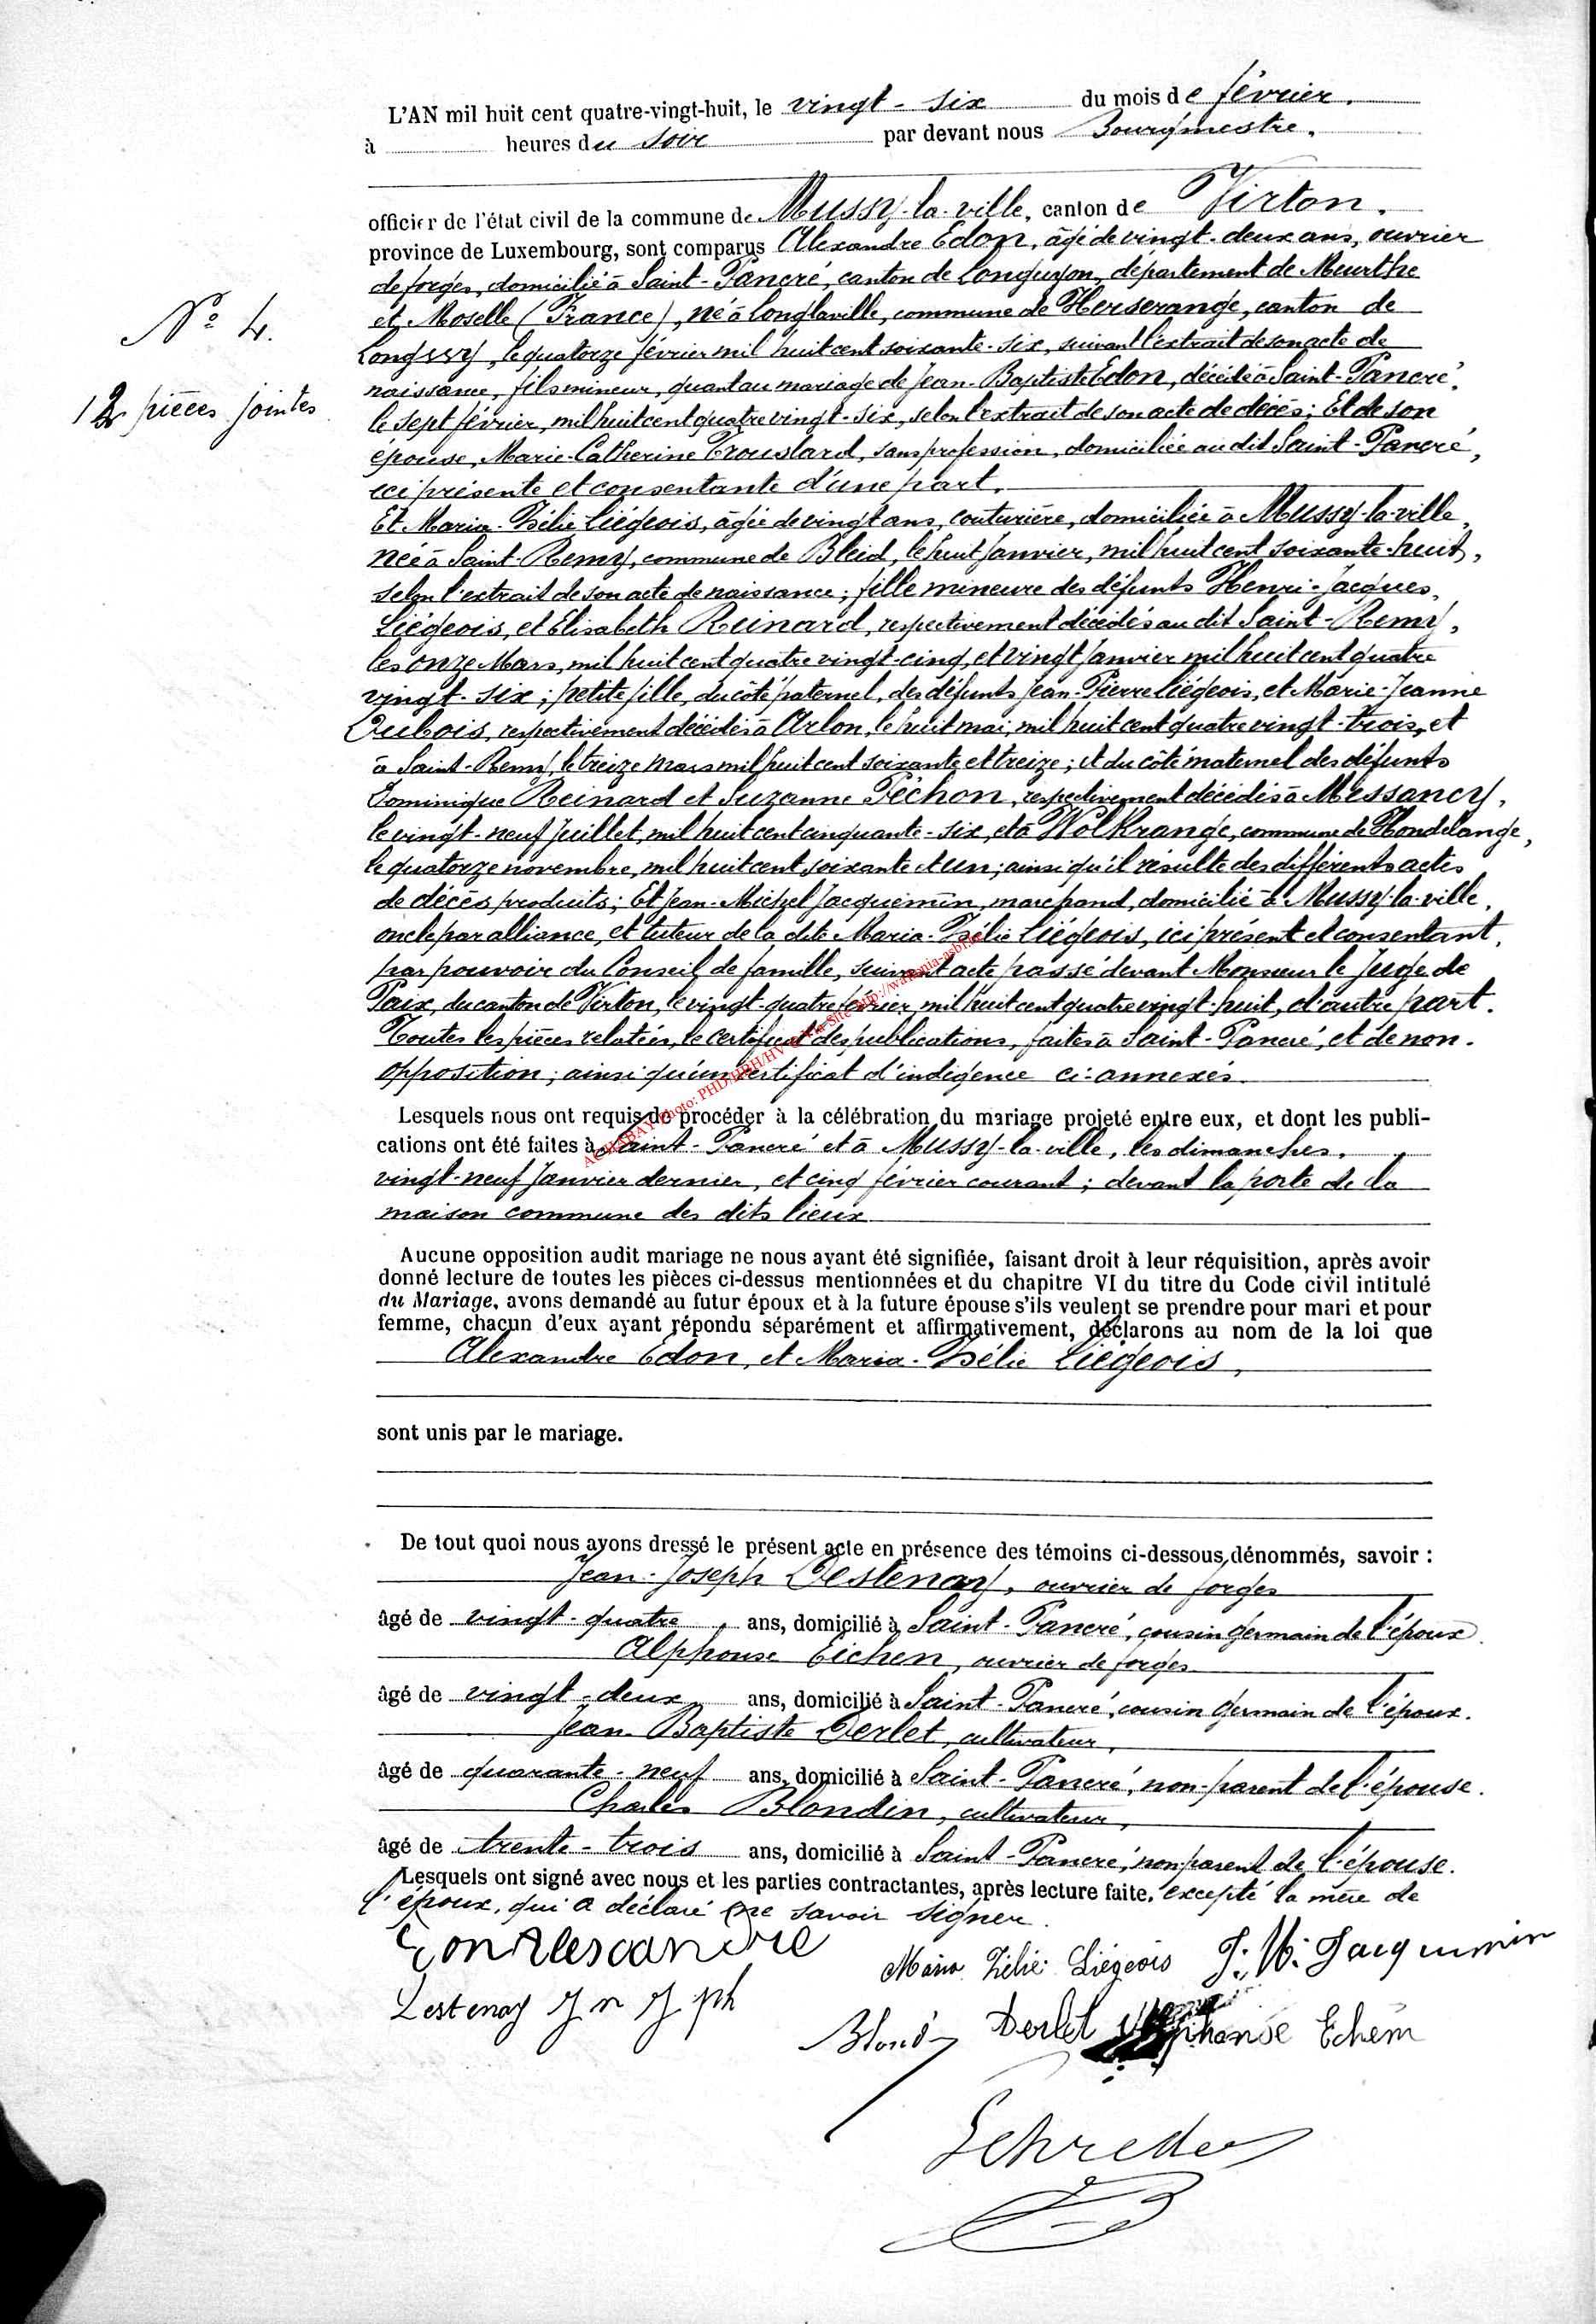 L'AN mil huit cent quatre-vingt-huit, le vingt-six du mois de février.
à heures du soir par devant nous Bourgmestre.
officier de l'état civil de la commune de Mussy-la-ville, canton de Virton.
province de Luxembourg, sont comparus Alexandre Edon, âgé de vingt-deux ans, ouvrier
de forges, domicilié à Saint-Pancré, canton de Longuyon, département de Meurthe
N° 4.
et Moselle (France), né à Longlaville, commune de Herserange, canton de
Longwy, le quatorze février mil huit cent soixante-six, suivant l'extrait de son acte de
naissance, fils mineur, quant au mariage de Jean-Baptiste Edon, décédé à Saint-Pancré,
12 pièces jointes
le sept février, mil huit cent quatre vingt-six, selon l'extrait de son acte de décès; Et de son
épouse, Marie-Catherine Trouslard, sans profession, domiciliée au dit Saint-Pancré,
ici présente et consentante d'une part.
Et Maria-Zélie Liégeois, âgée de vingt ans, couturière, domiciliée à Mussy-la-ville,
née à Saint-Remy, commune de Bleid, le huit Janvier, mil huit cent soixante-huit,
selon l'extrait de son acte de naissance; fille mineure des défunts Henri-Jacques
Liégeois, et Elisabeth Reinard, respectivement décédés au dit Saint-Remy,
les onze Mars, mil huit cent quatre vingt-cinq, et vingt Janvier mil huit cent quatre
vingt-six; petite fille, du côté paternel, des défunts Jean-Pierre Liégeois, et Marie-Jeanne
Dubois, respectivement décédés à Arlon, le huit mai, mil huit cent quatre vingt-trois, et
à Saint-Remy, le treize Mars mil huit cent soixante et treize; et du côté maternel des défunts
Dominique Reinard et Suzanne Péchon, respectivement décédés à Messancy,
le vingt-neuf Juillet, mil huit cent cinquante-six, et à Wolkrange, commune de Hondelange,
le quatorze novembre, mil huit cent soixante et un; ainsi qu'il résulte des différents actes
de décès produits; Et Jean-Michel Jacquemin, marchand, domicilié à Mussy-la-ville,
oncle par alliance, et tuteur de la dite Maria-Zélie Liégeois, ici présent et consentant,
par pouvoir du Conseil de famille, suivant acte passé devant Monsieur le Juge de
Paix, du canton de Virton, le vingt-quatre février, mil huit cent quatre vingt-huit, d'autre part.
Toutes les pièces relatées, le certificat des publications, faites à Saint-Pancré, et de non-
opposition; ainsi qu'un certificat d'indigence ci-annexés.
Lesquels nous ont requis de procéder à la célébration du mariage projeté entre eux, et dont les publi-
cations ont été faites à Saint-Pancré et à Mussy-la-ville, les dimanches.
vingt-neuf Janvier dernier, et cinq février courant; devant la porte de la
maison commune des dits lieux
Aucune opposition audit mariage ne nous ayant été signifiée, faisant droit à leur réquisition, après avoir
donné lecture de toutes les pièces ci-dessus mentionnées et du chapitre VI du titre du Code civil intitulé
du Mariage, avons demandé au futur époux et à la future épouse s'ils veulent se prendre pour mari et pour
femme, chacun d'eux ayant répondu séparément et affirmativement, déclarons au nom de la loi que
Alexandre Edon, et Maria-Zélie Liégeois,
sont unis par le mariage.
De tout quoi nous avons dressé le présent acte en présence des témoins ci-dessous dénommés, savoir :
Jean-Joseph Destenay, ouvrier de forges
âgé de vingt-quatre ans, domicilié à Saint-Pancré, cousin germain de l'époux.
Alphonse Eichen, ouvrier de forges
âgé de vingt-deux ans, domicilié à Saint-Pancré, cousin germain de l'époux.
Jean Baptiste Derlet, cultivateur,
âgé de quarante-neuf ans, domicilié à Saint-Pancré, non-parent de l'épouse.
Charles Blondin, cultivateur,
âgé de trente-trois ans, domicilié à Saint-Pancré, non parent de l'épouse.
Lesquels ont signé avec nous et les parties contractantes, après lecture faite, excepté la mère de
l'époux, qui a déclaré ne savoir signer.
Maria Zélie Liégeois J. M. Jacquemin
Lestenay J n J ph
Derlet Alphonse Echem
Schreder